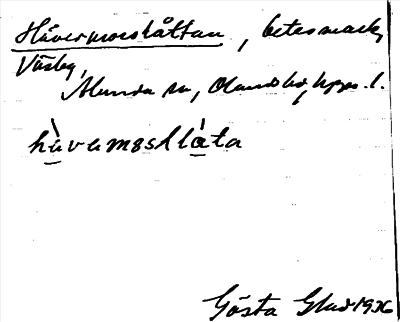 Hävermosslåttan, betesmark,
Väsby,
Almunga sn, Olands hd, Upps. l.
hàvamossllàta
Gösta Glad 1936